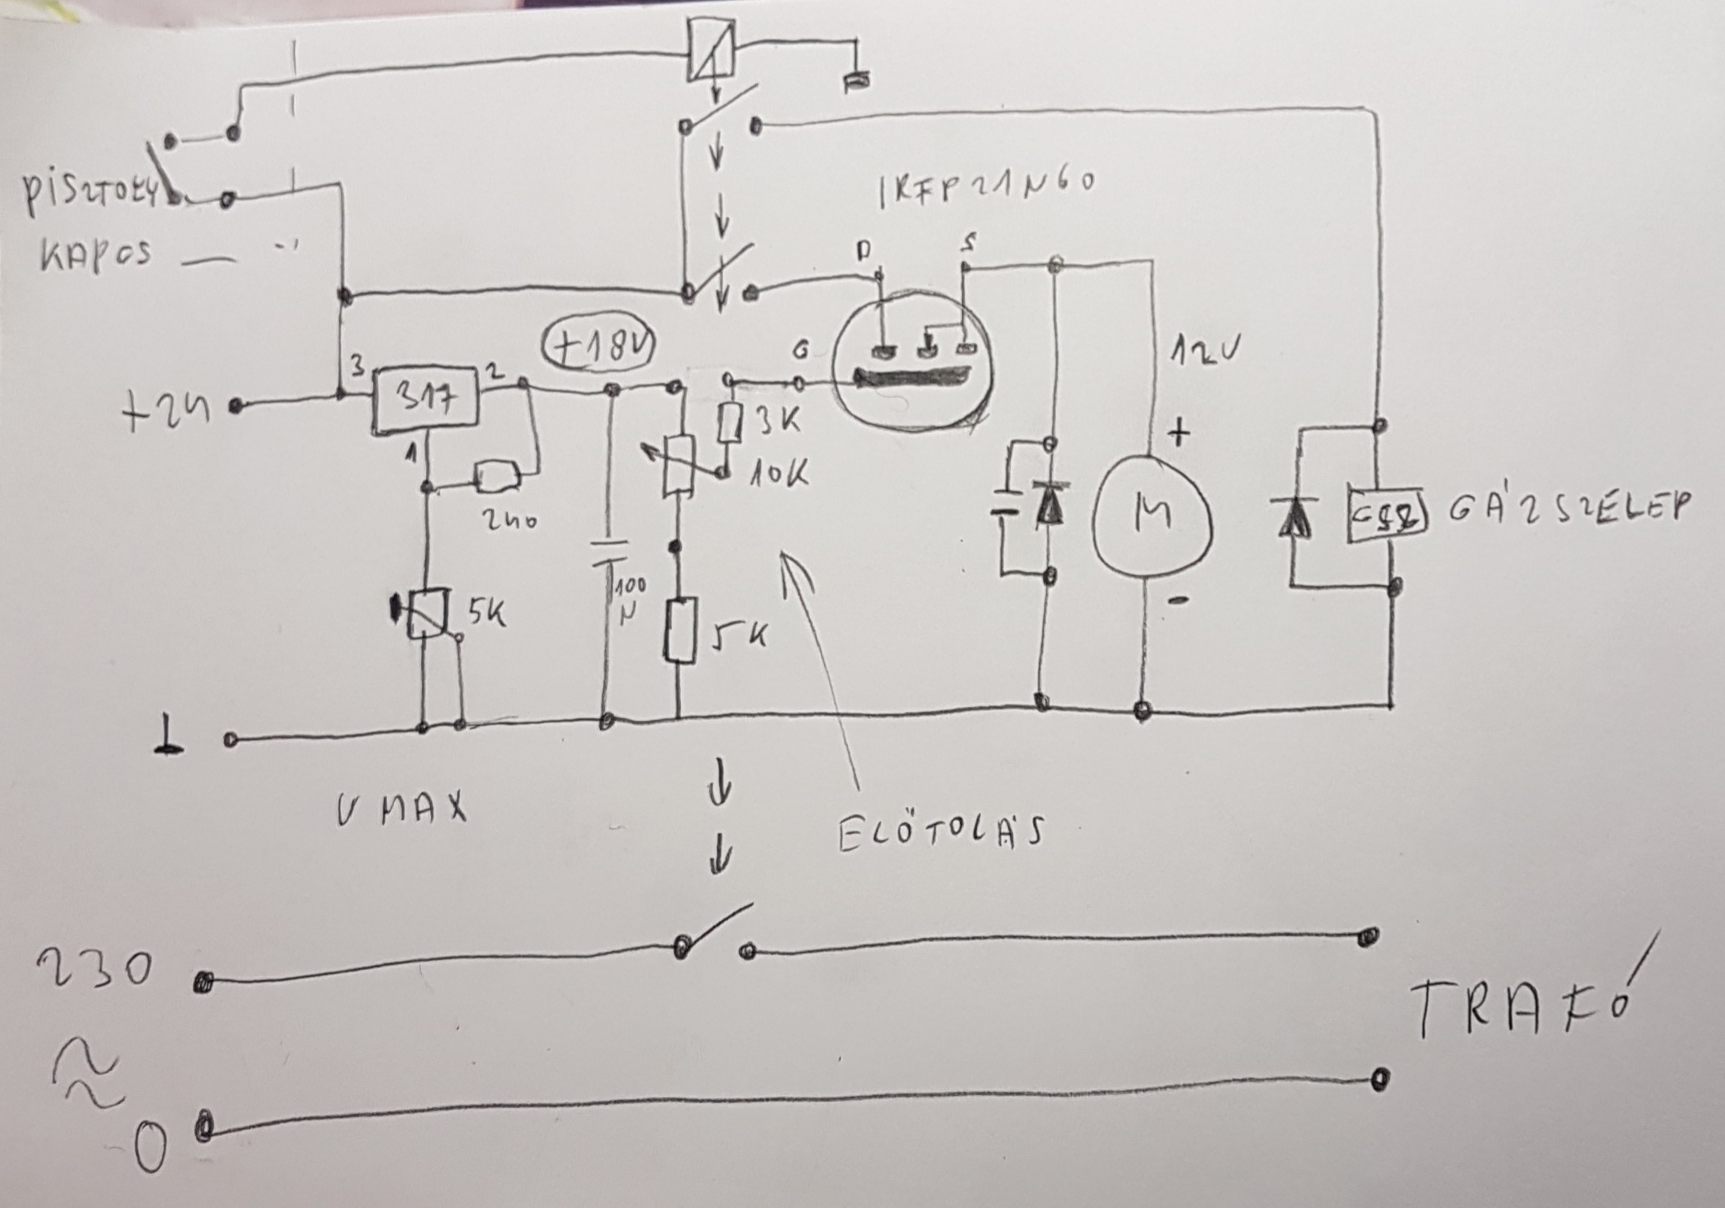 PISZTOLY
KAPCS
IRFP21N60
D
S
+18V
G
12V
3
317
2
+24
3K
+
1
10K
M
GÁZSZELEP
240
5K
100
N
5K
-
V MAX
ELŐTOLÁS
230
TRAFÓ
~
~
0